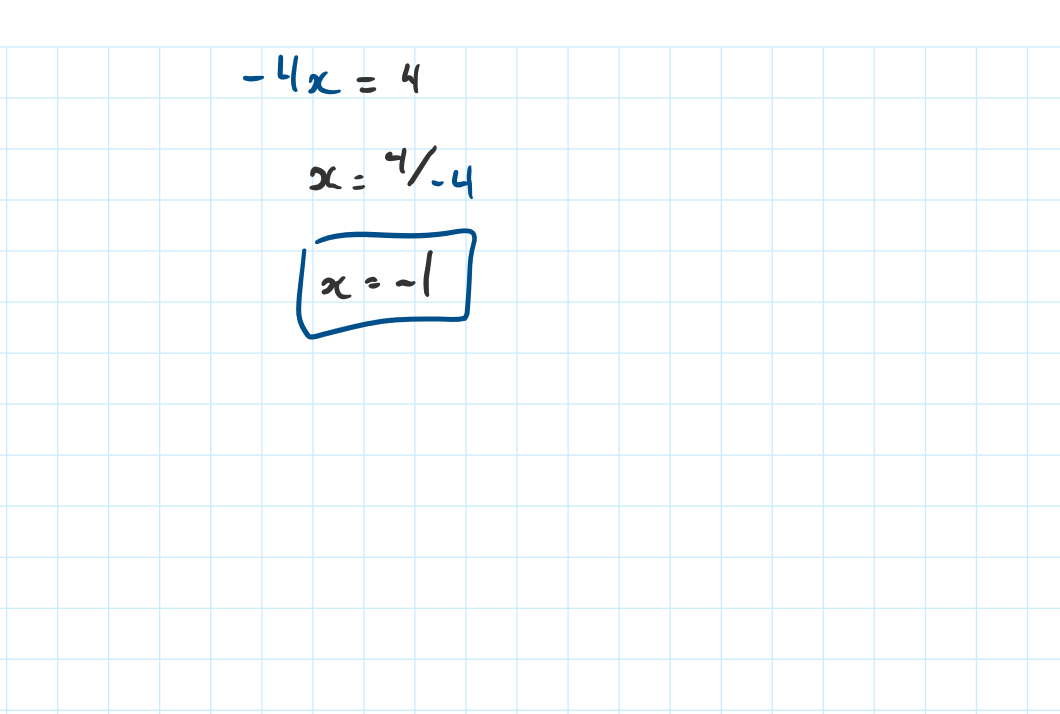 -4x = 4
x = 4/-4
x = -1